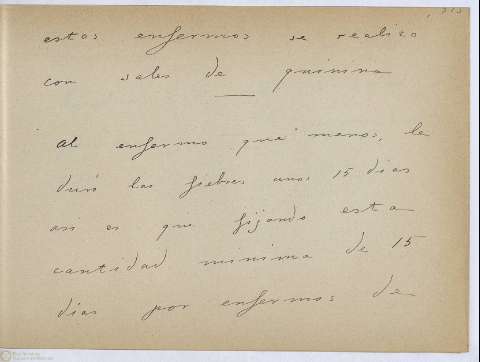 estos enfermos se realizo
con sales de quinina
Al enfermo que menos, le
duró las fiebres unos 15 días
asi es que fijando esta
cantidad minima de 15
dias por enfermos de